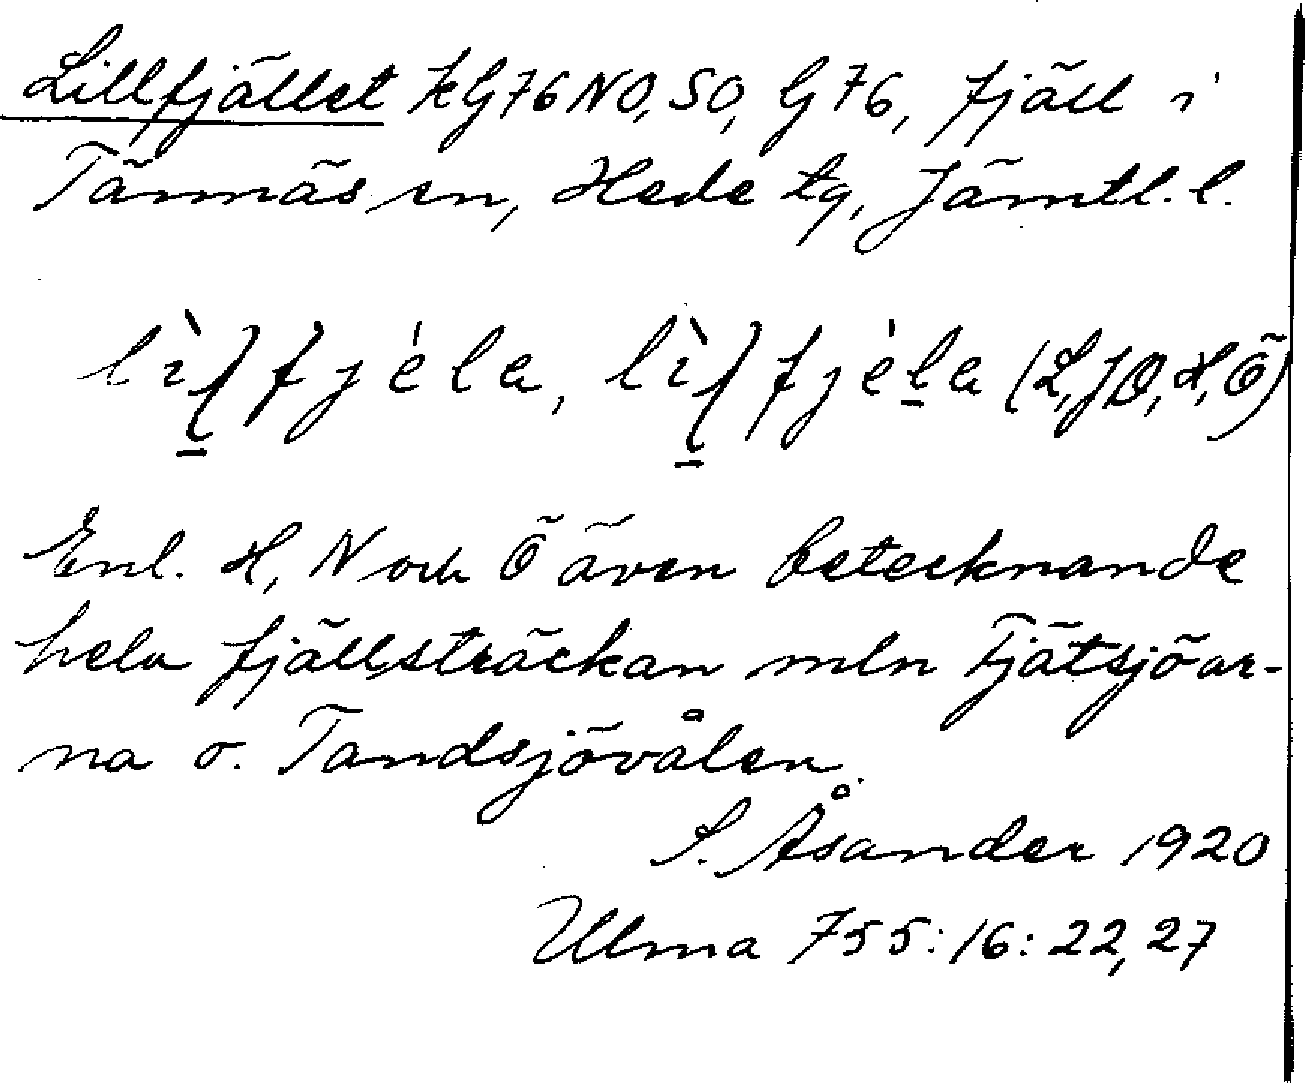 Lillfjället kG76NO, SO, G76, fjäll i
Tännäs sn, Hede tg, Jämtl. l.
lìʃfjéla, lìʃfjéla (L, JÖ, H, Ö)
Enl. H, N och Ö även betecknande
hela fjällsträckan mln Tjätsjöar-
na o. Tandsjövålen.
S. Åsander 1920
Ulma 755:16:22,27